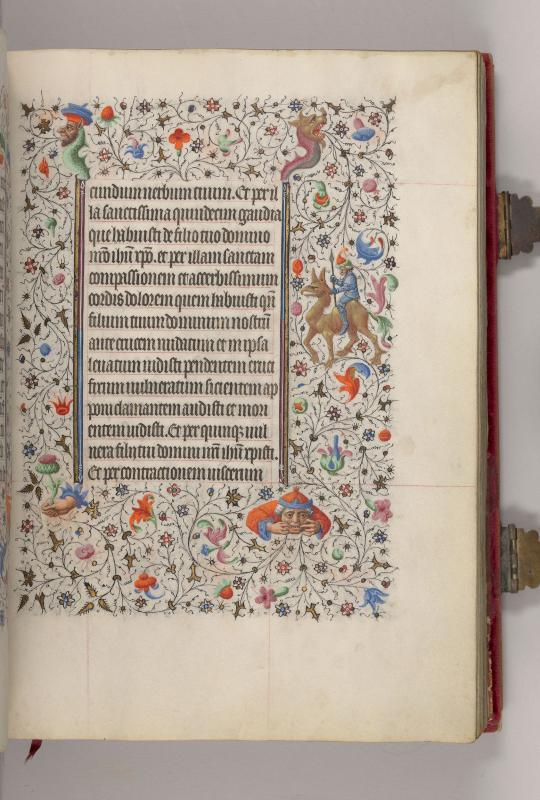 cundium verbum tuum. Et per il
la sanctissima quindecim gaudia
que habuisti de filio tuo domino
nr̄o ihū xp̄o. et per illam sanctam
compassionem et acerbissimum
cordis dolorem quem habuisti qn̄
filium tuum dominum nostrū
ante crucem nudatum et in ipsa
leuatum uidisti pendentem cruci
fixum uulneratum sicientem ap
poni clamantem audisti et mori
entem uidisti. Et per quinqz uul
nera filij tui domini nr̄i ihū xpisti.
Et per contractionem uiscerum